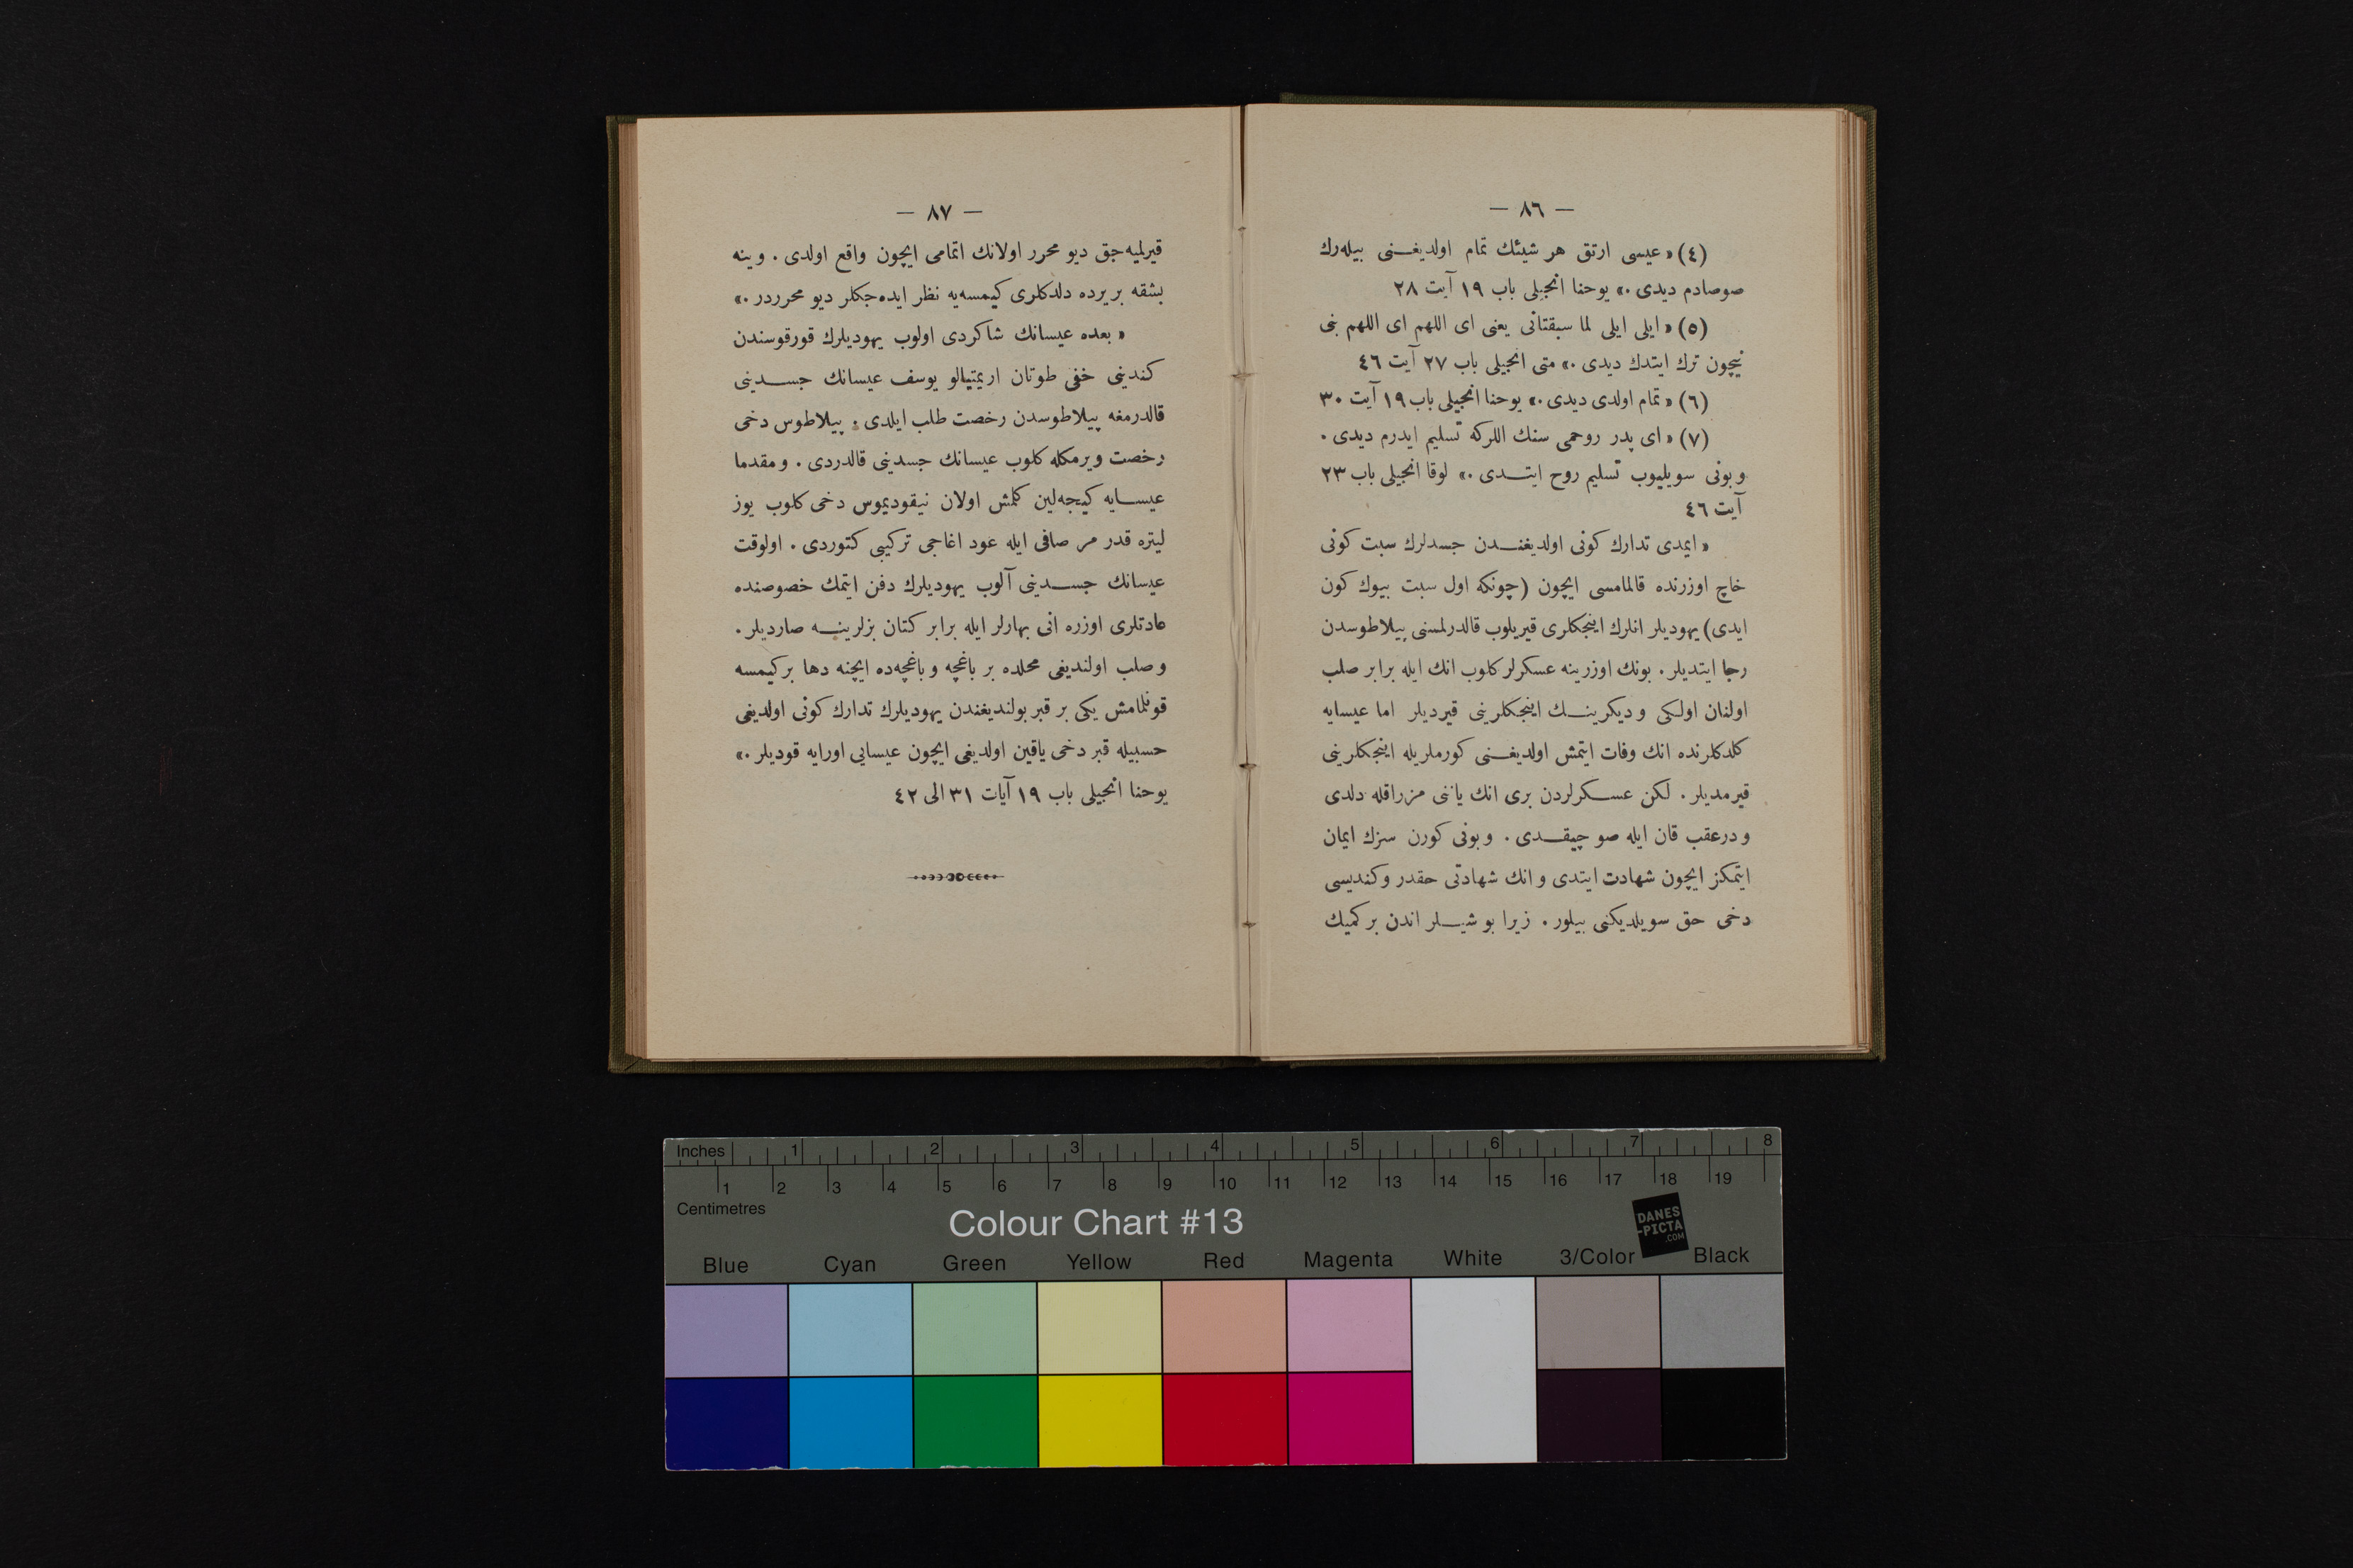 — ٨٦ —
(٤) « عیسی ارتق هر شیئك تمام اولدیغـنی بیله‌رك
صوصادم دیدی .» یوحنا انجیلی باب ١٩ آیت ٢٨
(٥) « ایلی ایلی لما سبقتانی یعنی ای اللهم ای اللهم بنی
نیچون ترك ایتدك دیدی .» متی انجیلی باب ٢٧ آیت ٤٦
(٦) « تمام اولدی دیدی .» یوحنا انجیلی باب ١٩ آیت ٣٠
(٧) « ای پدر روحمی سنك اللركه تسلیم ایدرم دیدی .
و بونی سویلیوب تسلیم روح ایتـدی .» لوقا انجیلی باب ٢٣
آیت ٤٦
« ایمدی تدارك كونی اولدیغنـدن جسدلرك سبت كونی
خاچ اوزرنده قالمامسی ایچون (چونكه اول سبت بیوك كون
ایدی) یهودیلر انلرك اینجكلری قیریلوب قالدرلمسنی پیلاطوسدن
رجا ایتدیلر . بونك اوزرینه عسكرلر كلوب انك ایله برابر صلب
اولنان اولكی و دیكرینـك اینجكلرینی قیردیلر اما عیسایه
كلدكلرنده انك وفات ایتمش اولدیغـنی كورملریله اینجكلرینی
قیرمدیلر . لكن عسـكرلردن بری انك یاننی مزراقله دلدی
و درعقب قان ایله صو چیقـدی . و بونی كورن سزك ایمان
ایتمكز ایچون شهادت ایتدی و انك شهادتی حقدر و كندیسی
دخی حق سویلدیكنی بیلور . زیرا بو شیـلر اندن بر كمیك
— ٨٧ —
قیرلمیه‌جق دیو محرر اولانك اتمامی ایچون واقع اولدی . و ینه
بشقه بر یرده دلدكلری كیمسه‌یه نظر ایده‌جكلر دیو محرردر .»
« بعده عیسانك شاكردی اولوب یهودیلرك قورقوسندن
كندینی خفی طوتان اریمتیالو یوسف عیسانك جسـدینی
قالدرمغه پیلاطوسدن رخصت طلب ایلدی . پیلاطوس دخی
رخصت ویرمكله كلوب عیسانك جسدینی قالدردی . و مقدما
عیسـایه كیجه‌لین كلمش اولان نیقودیموس دخی كلوب یوز
لیتره قدر مر صافی ایله عود اغاجی تركیبی كتوردی . اولوقت
عیسانك جسـدینی آلوب یهودیلرك دفن ایتمك خصوصنده
عادتلری اوزره انی بهارلر ایله برابر كتان بزلرینـه صاردیلر .
و صلب اولندیغی محلده بر باغچه و باغچه‌ده ایچنه دها بر كیمسه
قونلمامش یكی بر قبر بولندیغندن یهودیلرك تدارك كونی اولدیغی
حسبیله قبر دخی یاقین اولدیغی ایچون عیسایی اورایه قودیلر .»
یوحنا انجیلی باب ١٩ آیات ٣١ الی ٤٢
Inches 1 2 3 4 5 6 7 8
1 2 3 4 5 6 7 8 9 10 11 12 13 14 15 16 17 18 19
Centimetres
Colour Chart #13
DANES
-PICTA
.COM
Blue Cyan Green Yellow Red Magenta White 3/Color Black